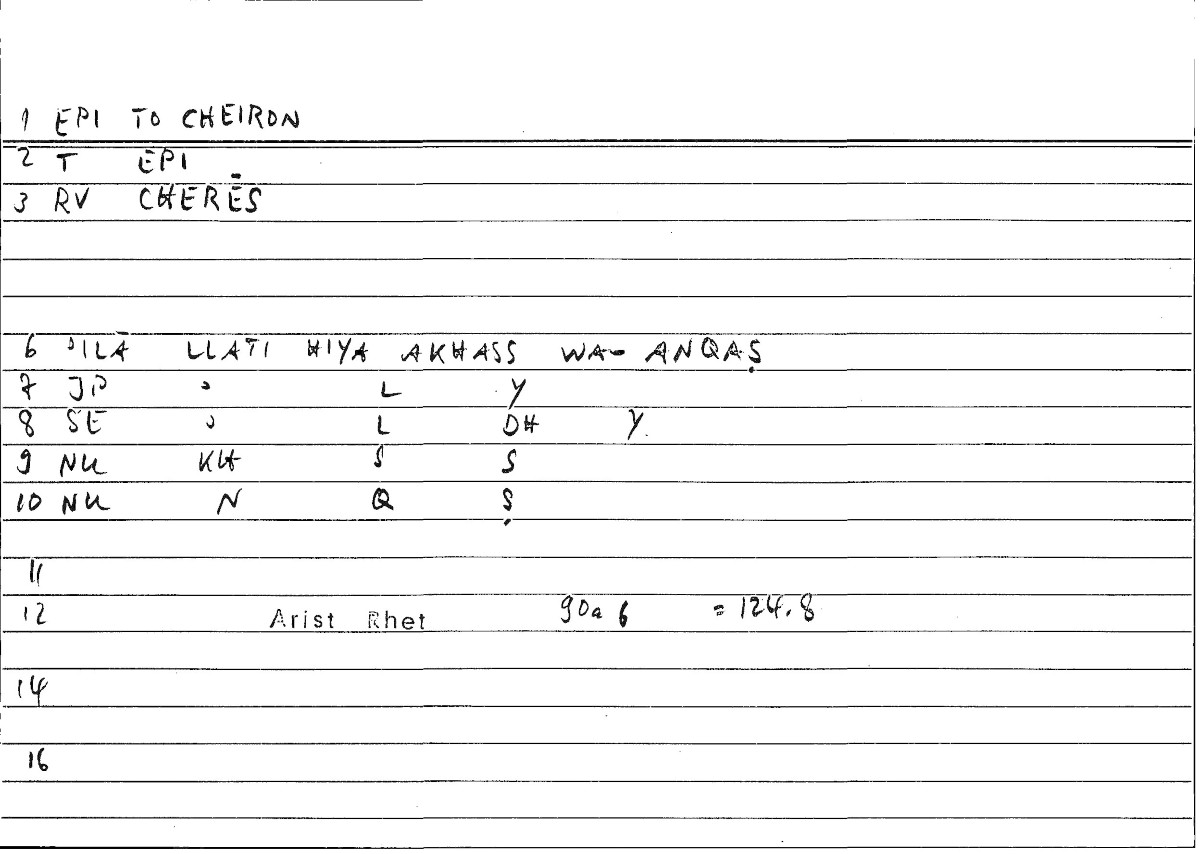 1 EPI TO CHEIRON
2 T EPI
3 RV CHERĒS
6 ʾILĀ LLATI HIYA AKHASS WA- ANQAṢ
7 JP ʾ L Y
8 SE ʾ L DH Y.
9 NU KH S S
10 NU N Q Ṣ
11
12 Arist Rhet 90a 6 = 124.8
14
16